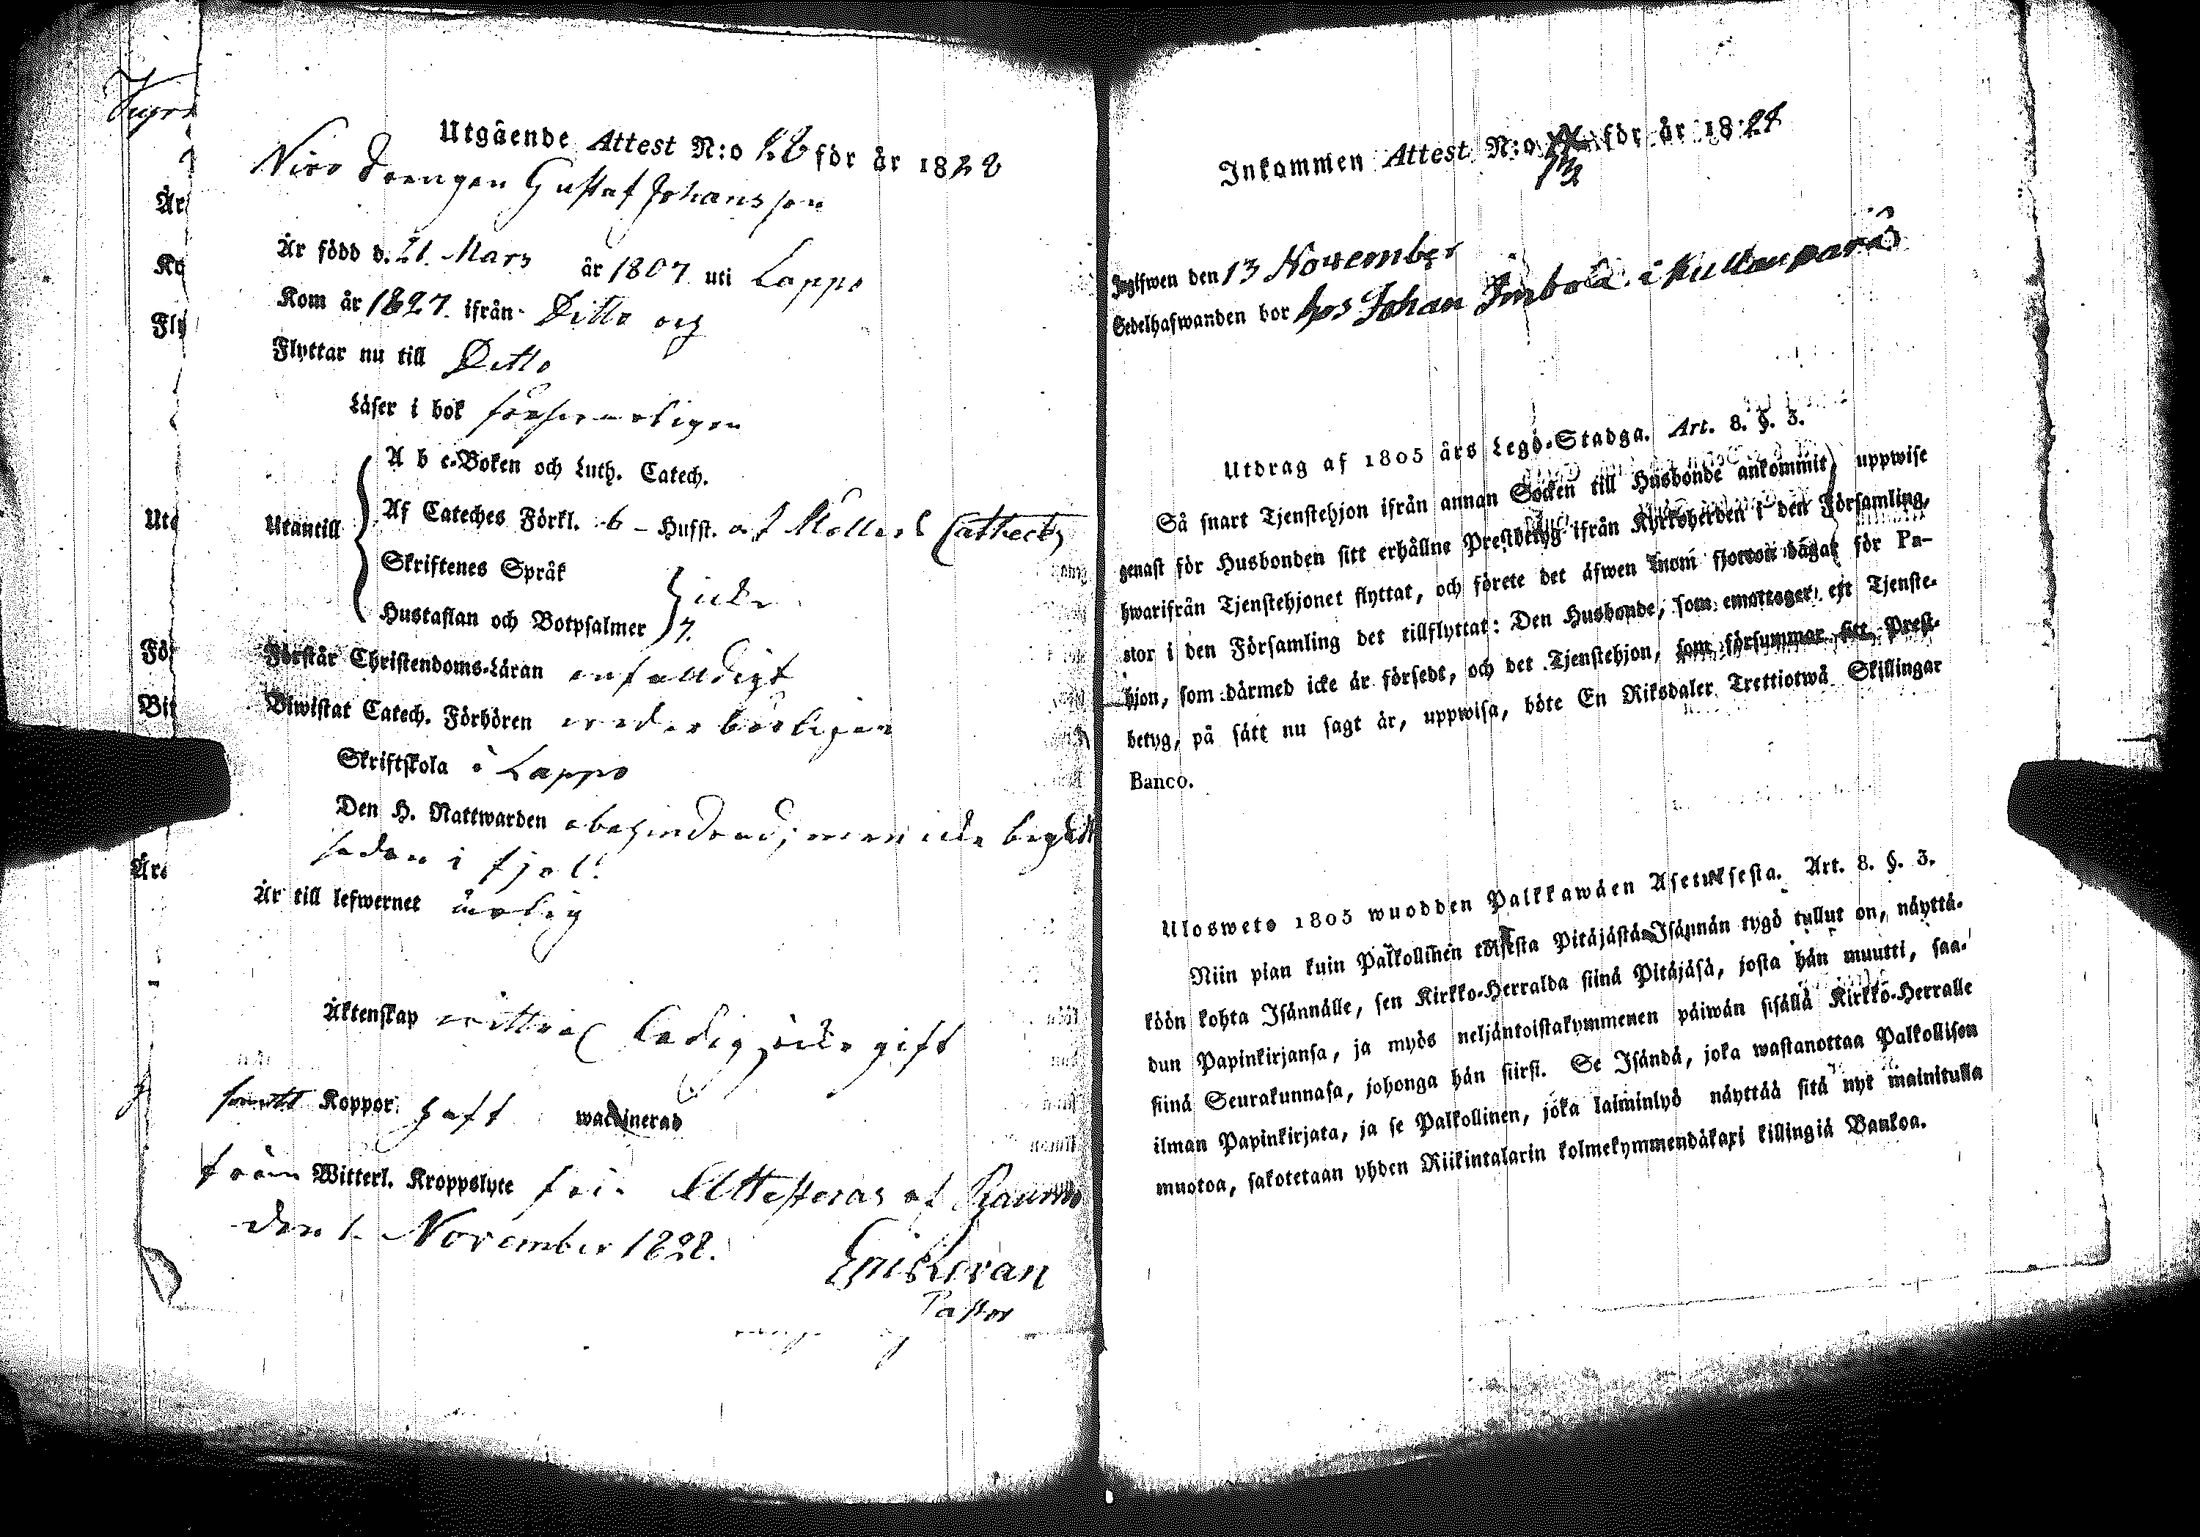 Utgående Attest N:o 28 för år 1828
Drengen Gustaf Johansson
Är född d. 21. Mars år 1807 uti Lappo
Kom år 1827. ifrån Ditto och
Flyttar nu till Ditto
Läser i bok försvarligen
Utantill
A b c-Boken och Luth. Catech.
Af Cateches Förkl. 6 – Hufst. af Möllers Cateches
Skriftenes Språk
icke
Hustaflan och Botpsalmer
Förstår Christendoms-Läran enfalldigt
Biwistat Catech. Förhören vederbörligen
Skriftskola i Lappo
Den H. Nattwarden obehindrad; men icke begått
sedan i fjol.
Är till lefwernet ärlig
Äktenskap witterl. ledig, icke gift
samt Koppor haft waccinerad
från Witterl. Kroppslyte fri. Attesteras af Raumo
den 1. November 1828.
Pastor
Inkommen Attest N:o 73 för år 1828
Inglfwen den 13 November
Sedelhafwanden bor hos Johan
Utdrag af 1805 års Lego-Stadga. Art. 8. §. 3.
Så snart Tjenstehjon ifrån annan Socken till Husbonde ankommit, uppwise
genast för Husbonden sitt erhållne Prestbetyg ifrån Kyrkoherden i den Församling,
hwarifrån Tjenstehjonet flyttat, och förete det äfwen inom fjorton dagar för Pa-
stor i den Församling det tillflyttat: Den Husbonde, som emottager ett Tjenste-
hjon, som därmed icke är försedt, och det Tjenstehjon, som försummar sitt Prest-
betyg, på sätt nu sagt är, uppwisa, böte En Riksdaler Trettiotwå Skillingar
Banco.
Uloswето 1805 wuodden Palkkawäen Asetuksesta. Art. 8. §. 3.
Niin pian kuin Palkollinen toisesta Pitäjästä Isännän tygö tullut on, näyttä-
köön kohta Isännälle, sen Kirkko-Herralda siinä Pitäjäsä, josta hän muutti, saa-
dun Papinkirjansa, ja myös neljäntoistakymmenen päiwän sisällä Kirkko-Herralle
siinä Seurakunnasa, johonga hän siirst. Se Isändä, joka wastanottaa Palkollisen
ilman Papinkirjata, ja se Palkollinen, joka laiminlyö näyttää sitä nyt mainitulla
muotoa, sakotetaan yhden Riikintalarin kolmekymmendäkaxi killingiä Bankoa.